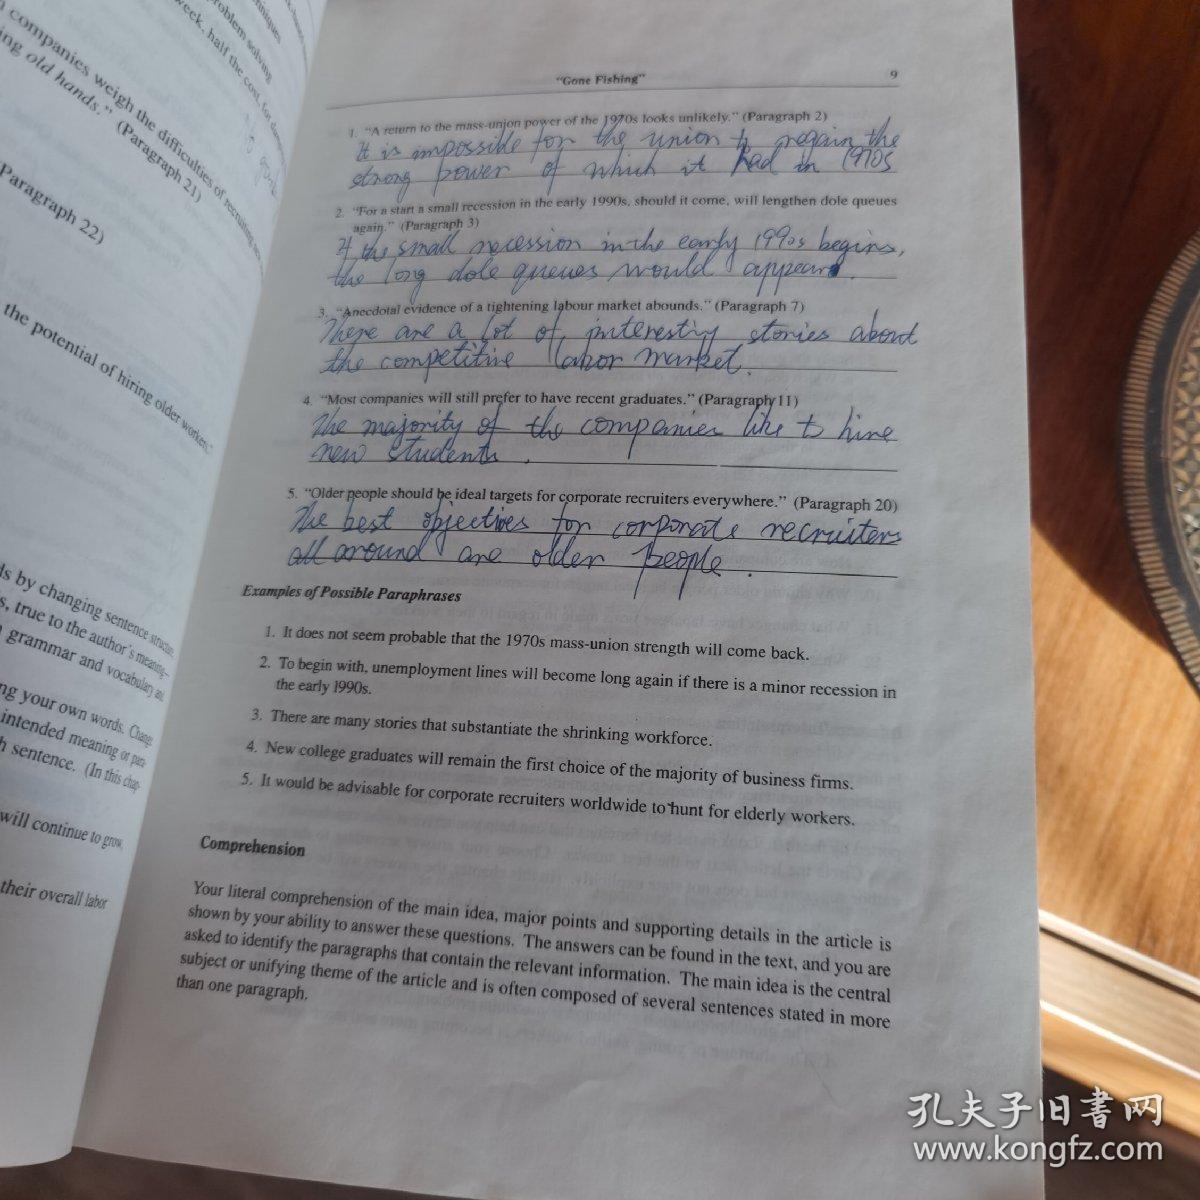 problem solving
week, half the cost, for
companies weigh the difficulties of recruiting
old hands." (Paragraph 21)
Paragraph 22)
the potential of hiring older workers."
by changing sentence structure,
s, true to the author's meaning—
grammar and vocabulary and
ng your own words. Change
intended meaning or para-
h sentence. (In this chap-
will continue to grow,
their overall labor
"Gone Fishing"
9
1. "A return to the mass-union power of the 1970s looks unlikely." (Paragraph 2)
It is impossible for the union to regain the
strong power of which it had in 1970s
2. "For a start a small recession in the early 1990s, should it come, will lengthen dole queues
again." (Paragraph 3)
If the small recession in the early 1990s begins,
the long dole queues would appear.
3. "Anecdotal evidence of a tightening labour market abounds." (Paragraph 7)
There are a lot of interesting stories about
the competitive labor market.
4. "Most companies will still prefer to have recent graduates." (Paragraph 11)
The majority of the companies like to hire
new students.
5. "Older people should be ideal targets for corporate recruiters everywhere." (Paragraph 20)
The best objectives for corporate recruiters
all around are older people.
Examples of Possible Paraphrases
1. It does not seem probable that the 1970s mass-union strength will come back.
2. To begin with, unemployment lines will become long again if there is a minor recession in
the early 1990s.
3. There are many stories that substantiate the shrinking workforce.
4. New college graduates will remain the first choice of the majority of business firms.
5. It would be advisable for corporate recruiters worldwide to hunt for elderly workers.
Comprehension
Your literal comprehension of the main idea, major points and supporting details in the article is
shown by your ability to answer these questions. The answers can be found in the text, and you are
asked to identify the paragraphs that contain the relevant information. The main idea is the central
subject or unifying theme of the article and is often composed of several sentences stated in more
than one paragraph.
孔夫子旧书网
www.kongfz.com